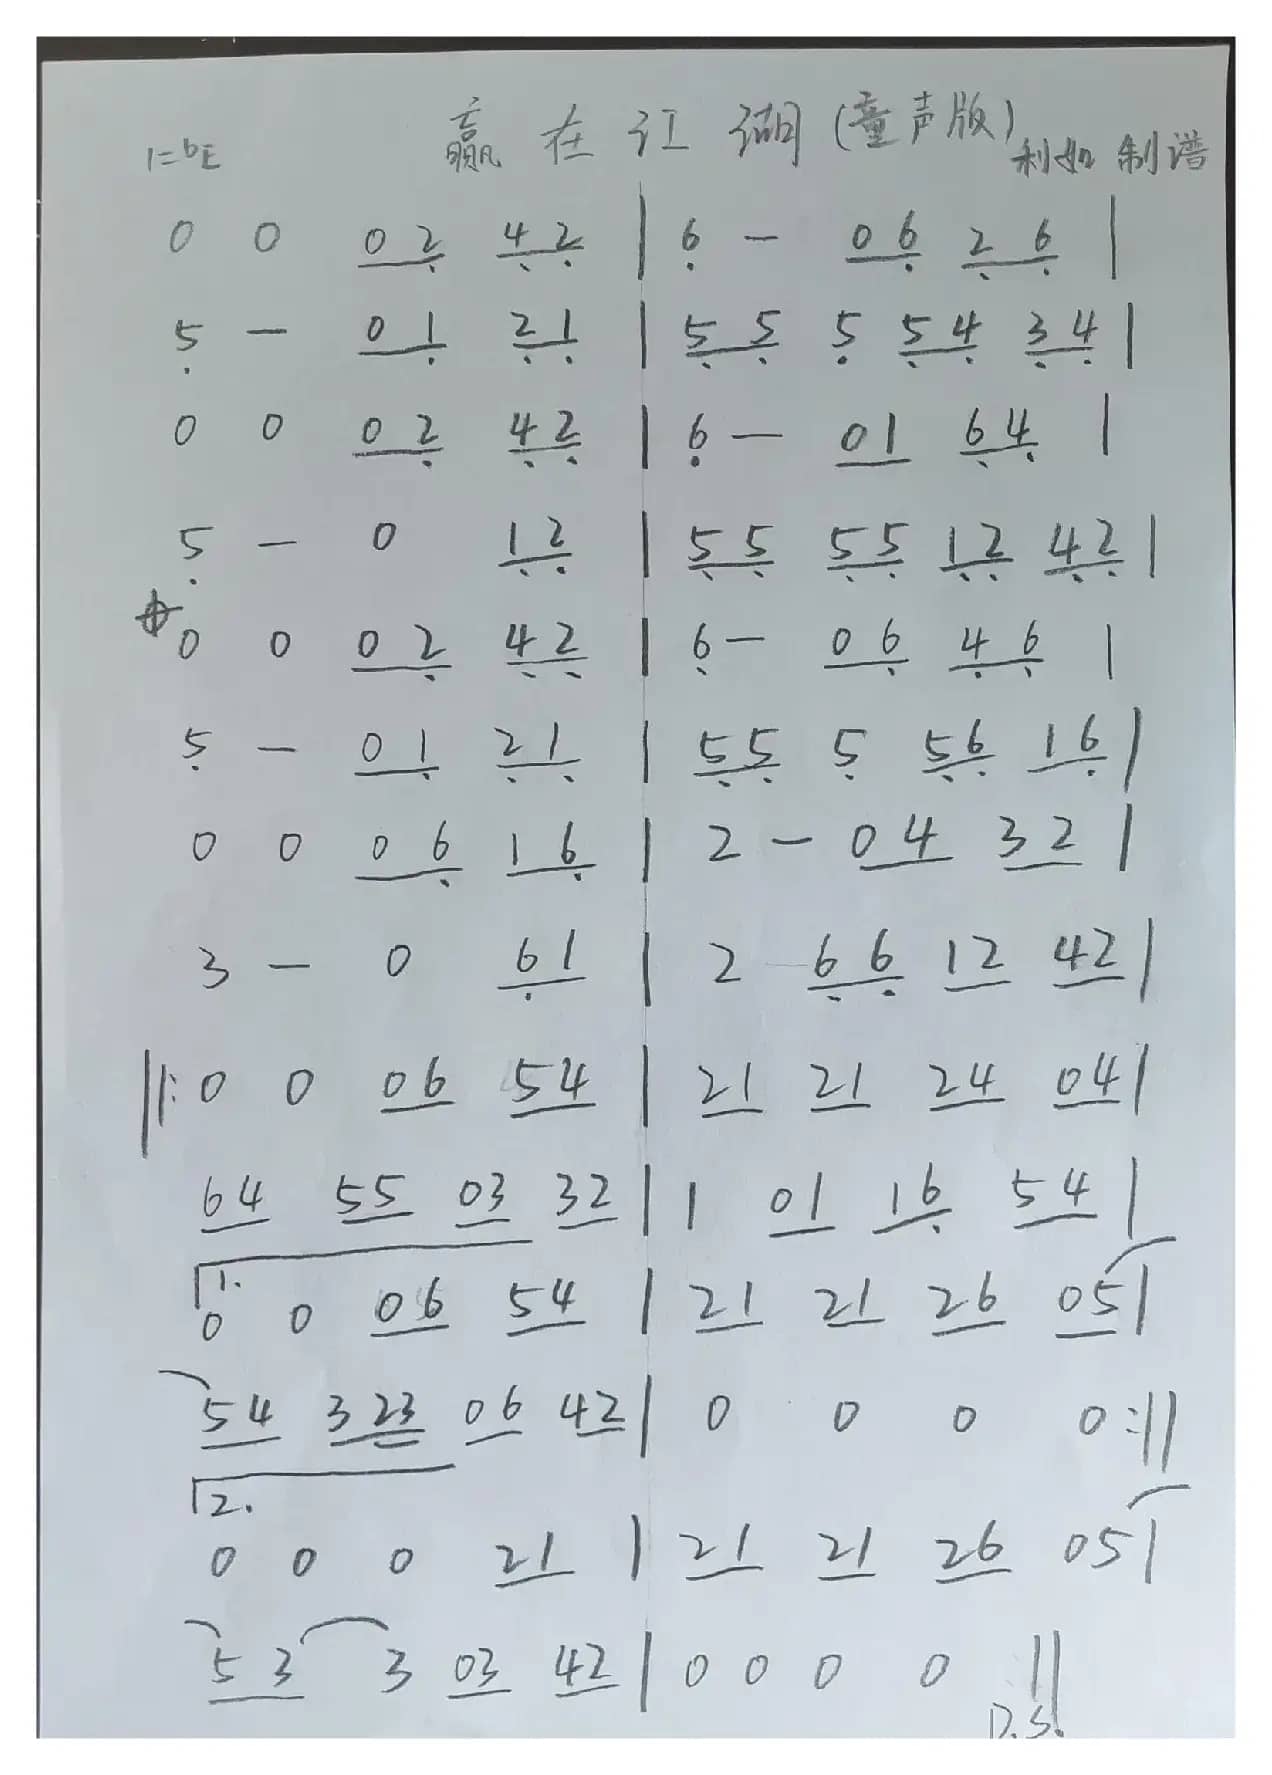 赢在江湖(童声版)
1=♭E 利如 制谱
0 0 0 2 4 2 | 6 — 0 6 2 6 |
5 — 0 1 2 1 | 5 5 5 5 4 3 4 |
0 0 0 2 4 2 | 6 — 0 1 6 4 |
5 — 0 1 2 | 5 5 5 5 1 2 4 2 |
0 0 0 2 4 2 | 6 — 0 6 4 6 |
5 — 0 1 2 1 | 5 5 5 5 6 1 6 |
0 0 0 6 1 6 | 2 — 0 4 3 2 |
3 — 0 6 1 | 2 6 6 1 2 4 2 |
‖: 0 0 0 6 5 4 | 2 1 2 1 2 4 0 4 |
6 4 5 5 0 3 3 2 | 1 0 1 1 6 5 4 |
1.
0 0 0 6 5 4 | 2 1 2 1 2 6 0 5 |
5 4 3 2 3 0 6 4 2 | 0 0 0 0 :‖
2.
0 0 0 2 1 | 2 1 2 1 2 6 0 5 |
5 3 3 0 3 4 2 | 0 0 0 0 ‖
D.S.